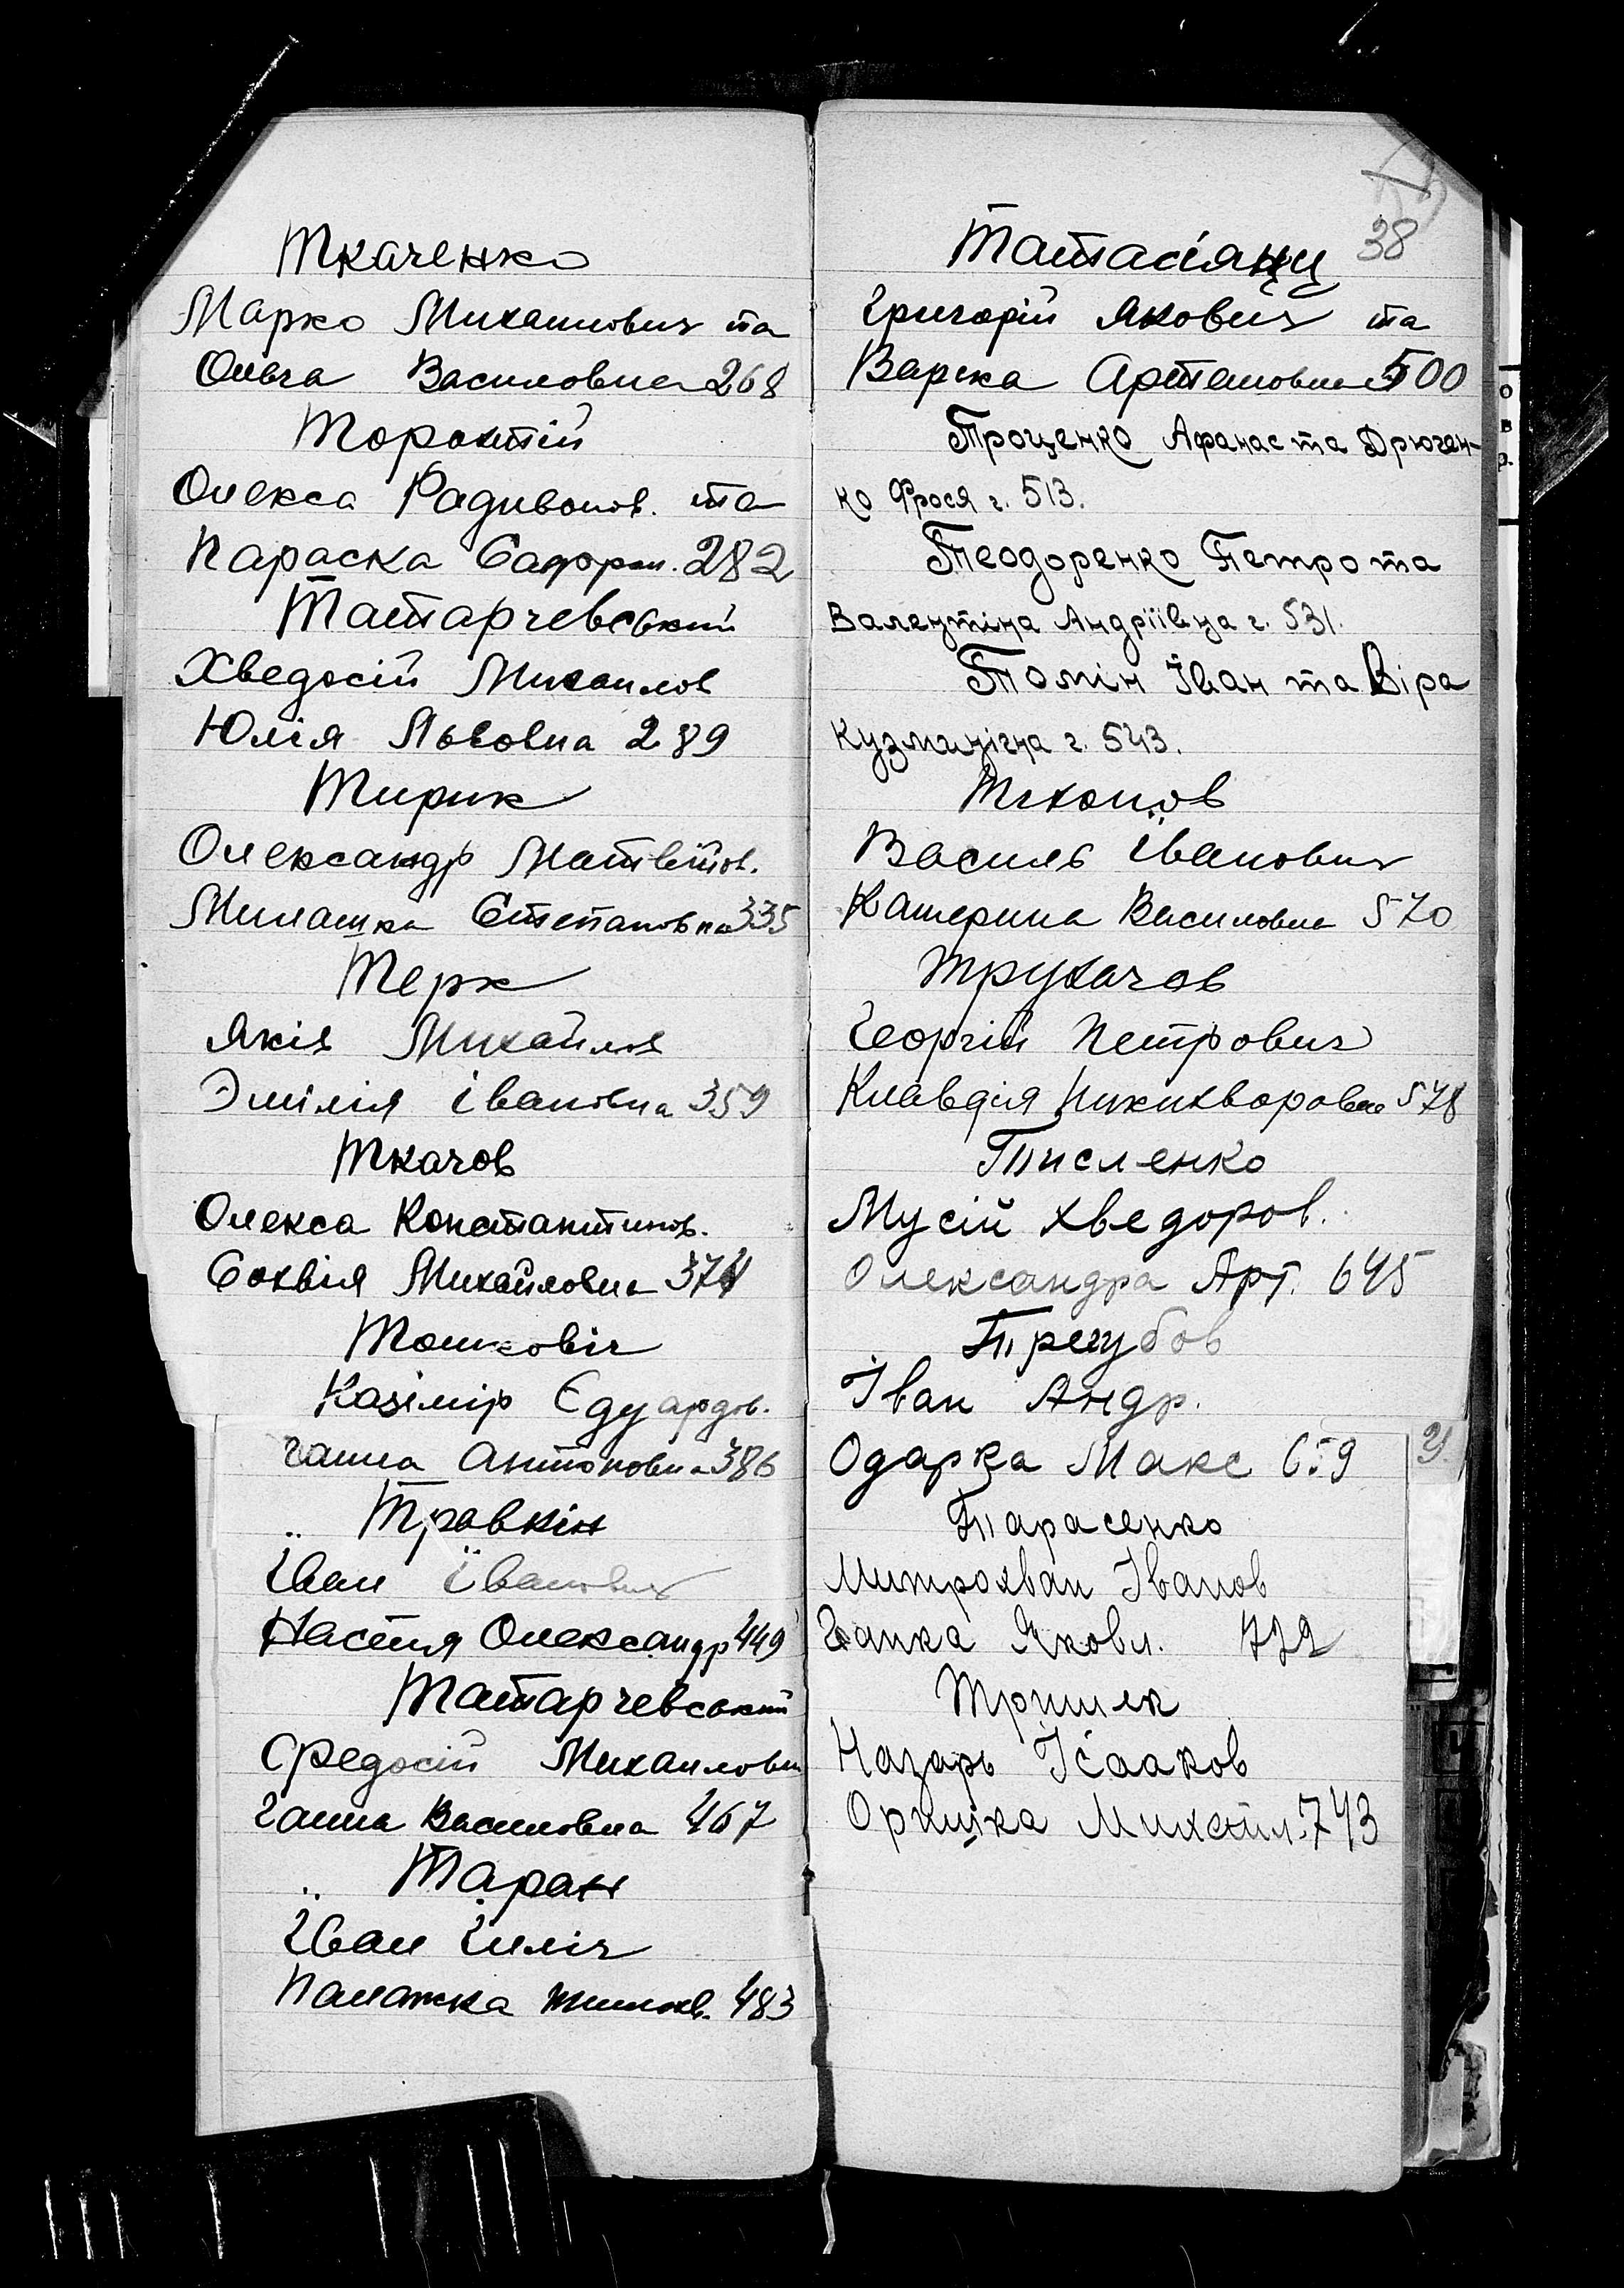 Ткаченко
Марко Михаилович та
Ольга Василовна 268
Торохтій
Олекса Радивонов. та
Параска Сафрон. 282
Татарчевський
Хведосій Михаилов
Юлія Львовна 289
Тирик
Олександр Матвійов.
Милашка Стпановна 335
Терк
Яків Михайлов
Эмілія Івановна 359
Ткачов
Олекса Константинов.
Сохвія Михайловна 374
Томкович
Казімір Єдуардов.
Ганна Антоновна 386
Травкін
Їван Їванович
Настя Олександр 449
Татарчевський
Федосій Михаилович
Ганна Василовна 467
Таран
Їван Їлліч
Палажка Тимохв. 483
38
Григорій Якович та
Варка 500
Троценко Афанас та Дрючен-
ко Фрося г. 513.
Теодоренко Петро та
Валентіна Андріївна г. 531.
Томін Їван та Віра
г. 543.
Тихонов
Василь Їванович
Катерина Василовна 570
Трухачов
Георгій Петрович
Клавдія Никихворовна 578
Тисленко
Мусій Хведоров.
Олександра Арт. 645
Трегубов
Іван Андр.
Одарка Макс 659
Тарасенко
Митрохван Іванов
Ганка Яковл.
Назарь Ісааков
Оришка Михайл. 743